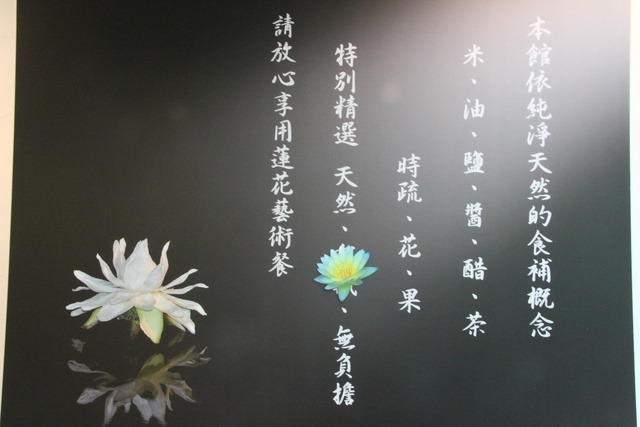 本館依純淨天然的食補概念
米、油、鹽、醬、醋、茶
時疏、花、果
特別精選 天然、、無負擔
請放心享用蓮花藝術餐